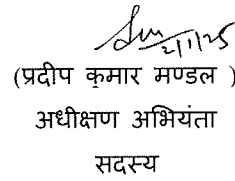 2/1/25
(प्रदीप कुमार मण्डल )
अधीक्षण अभियंता
सदस्य